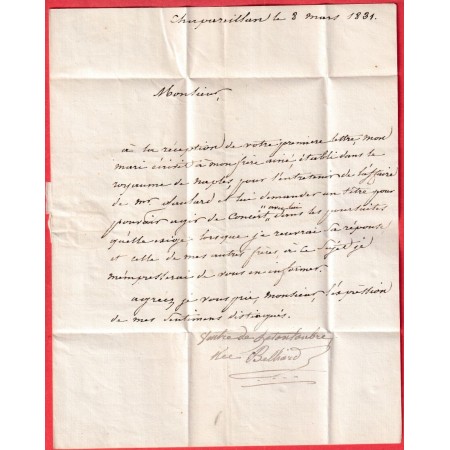 Chapareillan le 3 mars 1831.
Monsieur,
à la reception de votre premiere lettre, mon
mari écrivit à mon frère ainé, établi dans le
royaume de naples, pour l'entretenir de l'affaire
de mr. et lui demander un titre pour
pouvoir agir de Concert avec lui dans les poursuites
qu'elle exige lorsque je recevrai sa réponse
et celle de mes autres frères, à ce sujet je
m'empresserai de vous en informer.
agréez je vous prie, monsieur, l'expression
de mes sentimens distingués.
de
Née Belliard